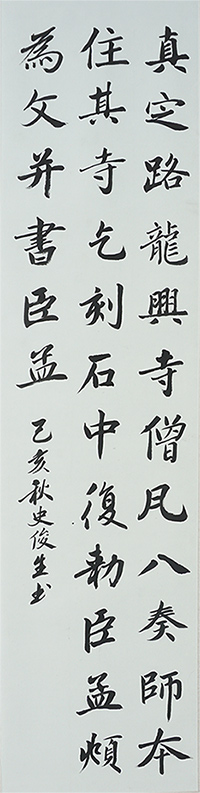 真定路龍興寺僧凡八奏師本
住其寺乞刻石中復勅臣孟頫
為文并書臣孟
己亥秋史俊生书